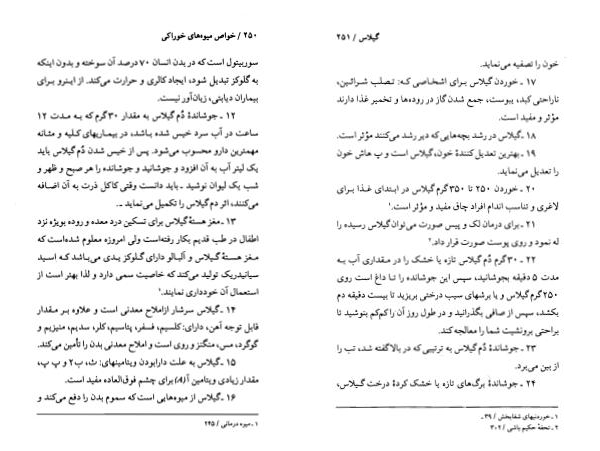 ۲۵۰ / خواص میوه‌های خوراکی
سوربیتول است که در بدن انسان ۷۰ درصد آن سوخته و بدون اینکه
به گلوکز تبدیل شود، ایجاد کالری و حرارت می‌کند. از اینرو برای
بیماران دیابتی، زیان‌آور نیست.
۱۲ ـ جوشاندهٔ دُم گیلاس به مقدار ۳۰گرم که به مدت ۱۲
ساعت در آب سرد خیس شده باشد، در بیماریهای کلیه و مثانه
مهمترین دارو محسوب می‌شود. پس از خیس شدن دُم گیلاس باید
یک لیتر آب به آن افزود و جوشانید و جوشانده را هر صبح و ظهر و
شب یک لیوان نوشید ـ باید دانست وقتی کاکل ذرت به آن اضافه
می‌کنند، اثر دم گیلاس را تکمیل می‌نماید ـ.
۱۳ ـ مغز هستهٔ گیلاس برای تسکین درد معده و روده بویژه نزد
اطفال در طب قدیم بکار رفته‌است ولی امروزه معلوم شده‌است که
مغز هستهٔ گیلاس و آلبالو دارای گلوکزید می‌باشد که اسید
سیانیدریک تولید می‌کند که خاصیت سمی دارد و لذا بهتر است از
استعمال آن خودداری نمایند.۱
۱۴ ـ گیلاس سرشار ازاملاح معدنی است و علاوه بر مقدار
قابل توجه آهن، دارای: کلسیم، فسفر، پتاسیم، کلر، سدیم، منیزیم و
گوگرد، مس، منگنز و روی است و املاح معدنی بدن را تأمین می‌کند.
۱۵ ـ گیلاس به علت دارابودن ویتامینهای: ث، ب۲ و پ پ،
مقدار زیادی ویتامین آ(A) برای چشم فوق‌العاده مفید است.
۱۶ ـ گیلاس از میوه‌هایی است که سموم بدن را دفع می‌کند و
۱ ـ میوه درمانی / ۲۴۵
گیلاس / ۲۵۱
خون را تصفیه می‌نماید.
۱۷ ـ خوردن گیلاس برای اشخاصی که: تـصلب شـرائـین،
ناراحتی کبد، یبوست، جمع شدن گاز در روده‌ها و تخمیر غذا دارند
مؤثر و مفید است.
۱۸ ـ گیلاس در رشد بچه‌هایی که دیر رشد می‌کنند مؤثر است.
۱۹ ـ بهترین تعدیل‌کنندهٔ خون، گیلاس است و پ هاش خون
را تعدیل می‌نماید.
۲۰ ـ خوردن ۲۵۰ تا ۳۵۰گرم گیلاس در ابتدای غذا بـرای
لاغری و تناسب اندام افراد چاق مفید و مؤثر است.۱
۲۱ ـ برای درمان لک و پیس صورت می‌توان گیلاس رسیده را
له نمود و روی پوست صورت قرار داد.۲
۲۲ ـ ۳۰گرم دُم گیلاس تازه یا خشک را در مقداری آب بـه
مدت ۵ دقیقه بجوشانید، سپس این جوشانده را تا داغ است روی
۲۵۰گرم گیلاس و یا برشهای سیب درختی بریزید تا بیست دقیقه دم
بکشد، سپس از صافی بگذرانید و در طول روز آن را کم‌کم بنوشید تا
براحتی برونشیت شما را معالجه کند.
۲۳ ـ جوشاندهٔ دُم گیلاس به ترتیبی که در بالاگفته شد، تب را
از بین می‌برد.
۲۴ ـ جوشاندهٔ برگ‌های تازه یا خشک کردهٔ درخت گیلاس،
۱ ـ خوردنیهای شفابخش / ۳۹ ـ
۲ ـ تحفهٔ حکیم باشی / ۳۰۲